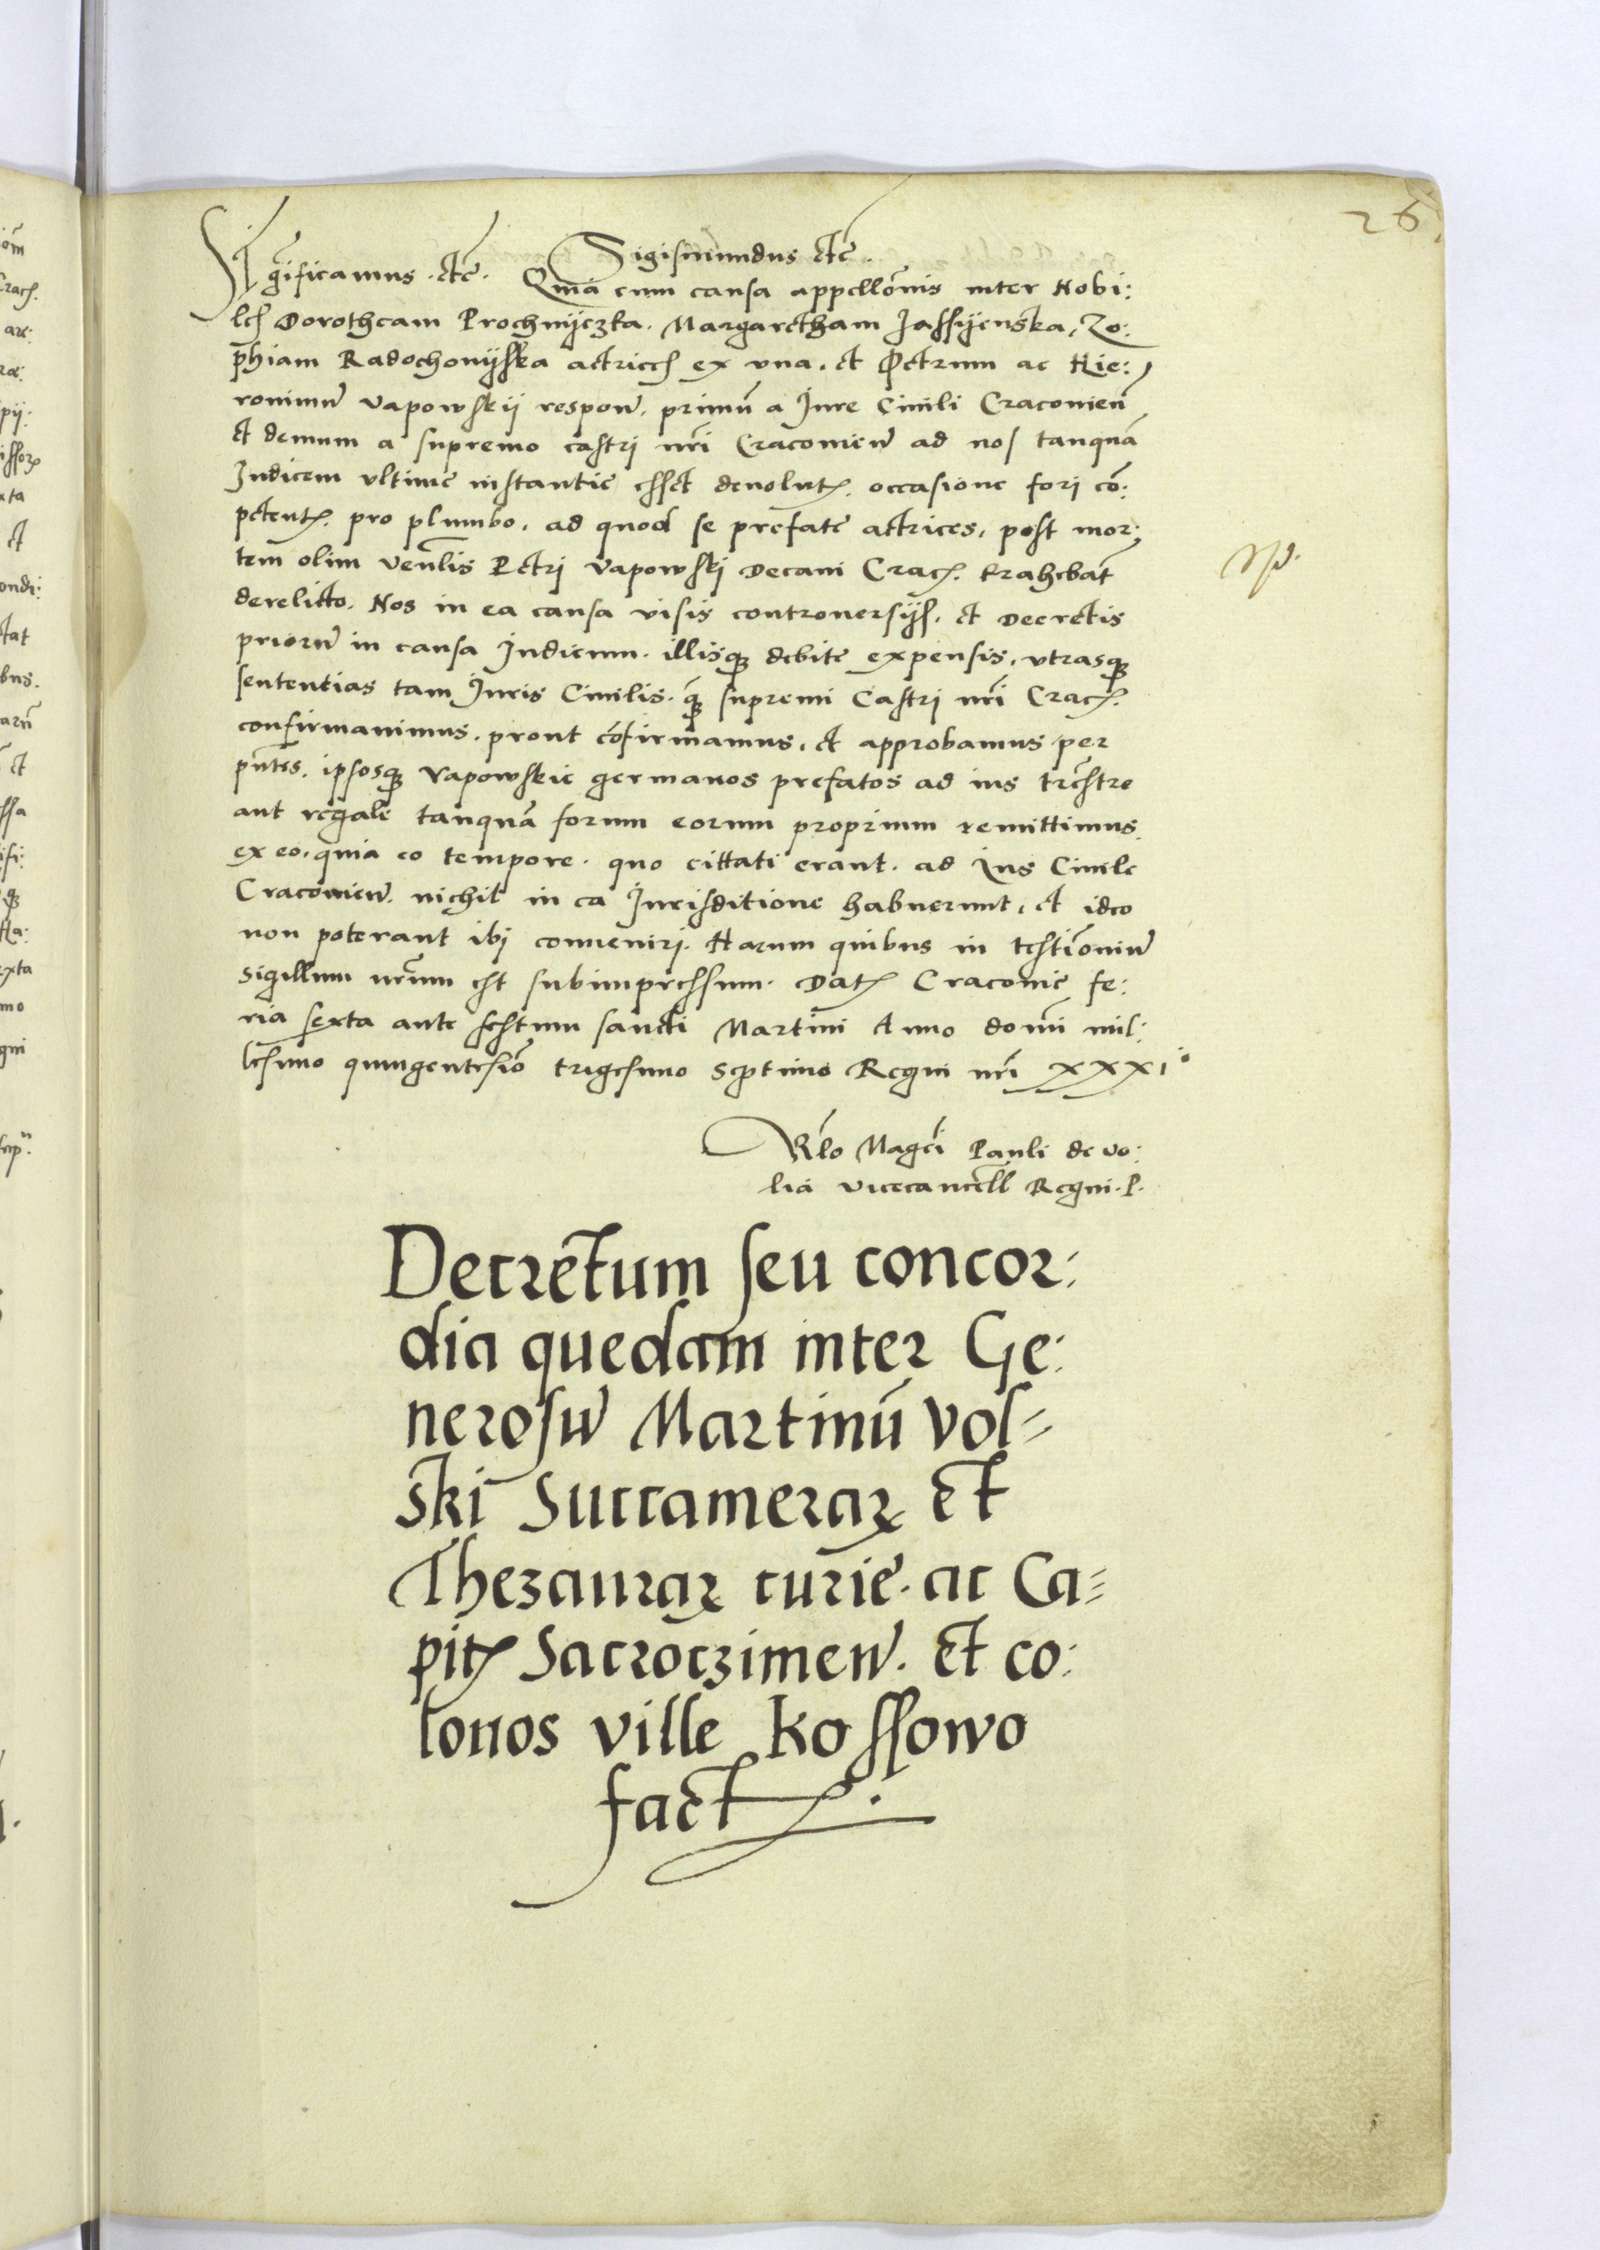 26
Sigismundus etc̄.
Significamus. etc̄. Quia cum causa appellōnis inter Nobi:
les Dorotheam Prochnijczka. Margaretham Jassijenska, Zo:
phiam Radochonijska actrices ex vna. et Petrum ac Hie:
ronimū Vapowskij respon̄. primū a Jure Ciuili Cracouien̄
et demum a supremo castri nr̄i Cracouien̄ ad nos tanquā
Judicem vltime instantie esset deuolutꝭ. occasione fori cō:
petentꝭ. pro plumbo. ad quod se prefate actrices, post mor:
tem olim Ven̄lis Petri Vapowski Decani Cracꝭ. trahebāt
derelicto. Nos in ea causa visis controuersijs. et Decretis
priorū in causa Judicum. illisqꝫ debite expensis, vtrasqꝫ
sententias tam Juris Ciuilis. qꝫ supremi Castri nr̄i Cracꝭ.
confirmauimus. prout cōfirmamus, et approbamus per
pn̄tes. ipsosqꝫ Vapowskie germanos prefatos ad ius tr̄estre
aut regale tanquā forum eorum proprium remittimus.
ex eo. quia eo tempore. quo cittati erant. ad Jus Ciuile
Cracouien̄. nichil in ea Jurisditione habuerunt, et ideo
non poterant ibi conueniri. Harum quibus in testīoniū
sigillum nr̄um est subimpressum. Datꝭ Cracouie fe:
ria sexta ante festum sancti Martini Anno domī mil:
lesimo quingentesiō trigesimo septimo Regni nr̄i xxxi°
Rl̄o Maḡci Pauli de vo:
lia vicecancell̄ Regni. P.
Decretum seu concor:
dia quedam inter Ge:
nerosū Martinū Vol=
ski Succamerarꝭ et
Thezaurarꝭ curie. ac Ca=
pitꝭ Sacroczimen̄. et co:
lonos ville Kossowo
factꝭ.